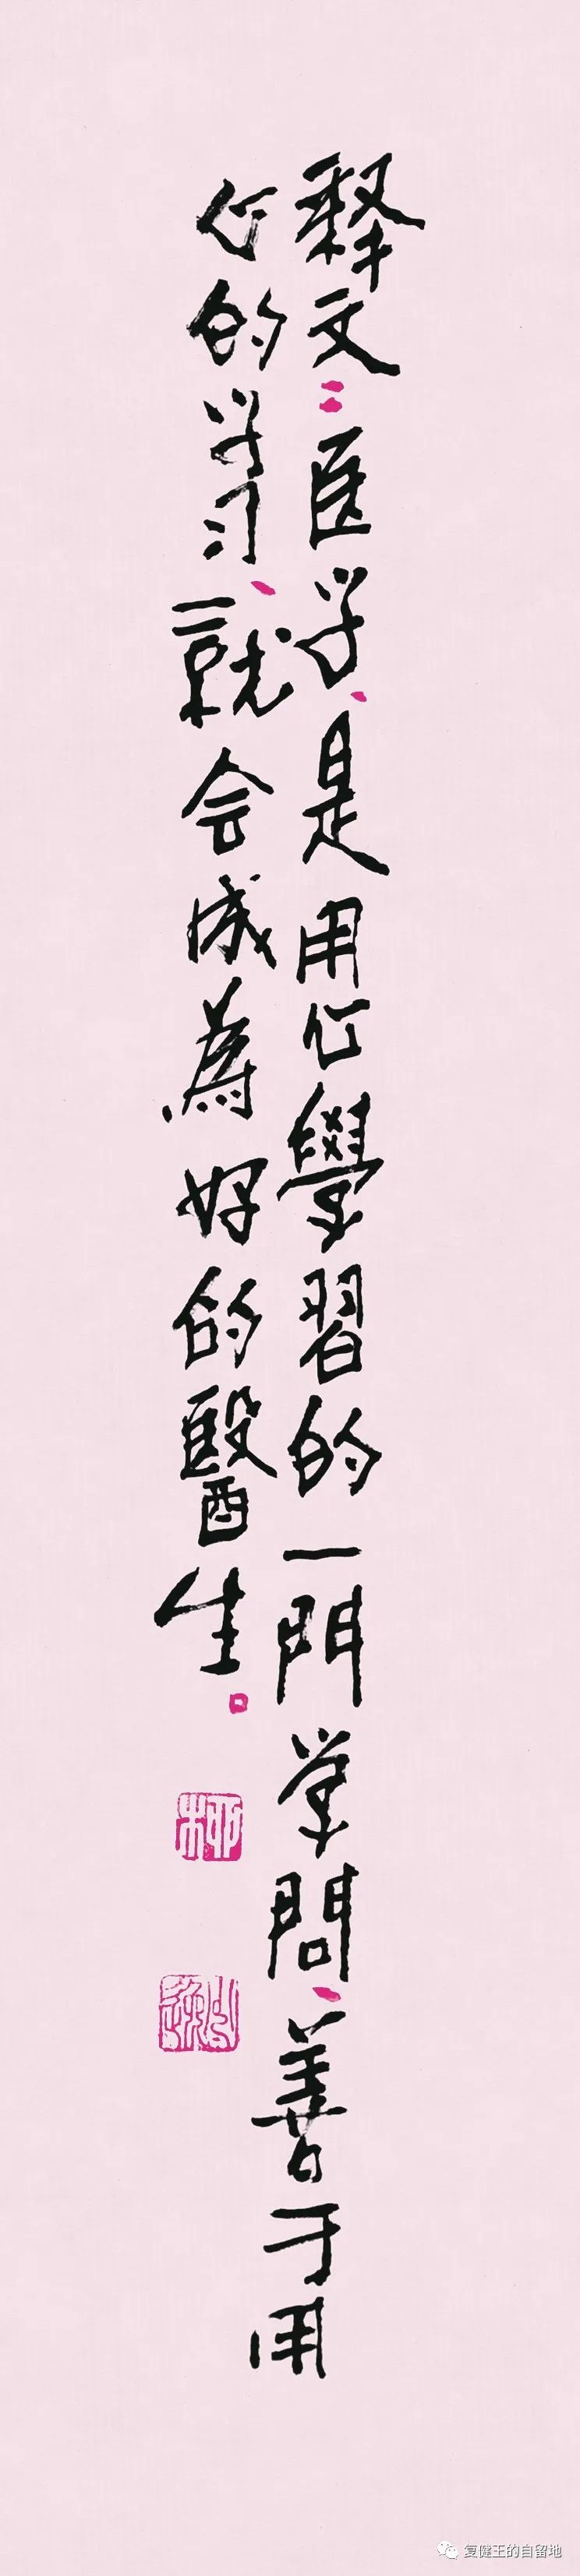 释文：医学、是用心學習的一門学問、善于用
心的学习、就会成為好的醫生。
柯
复健王的自留地